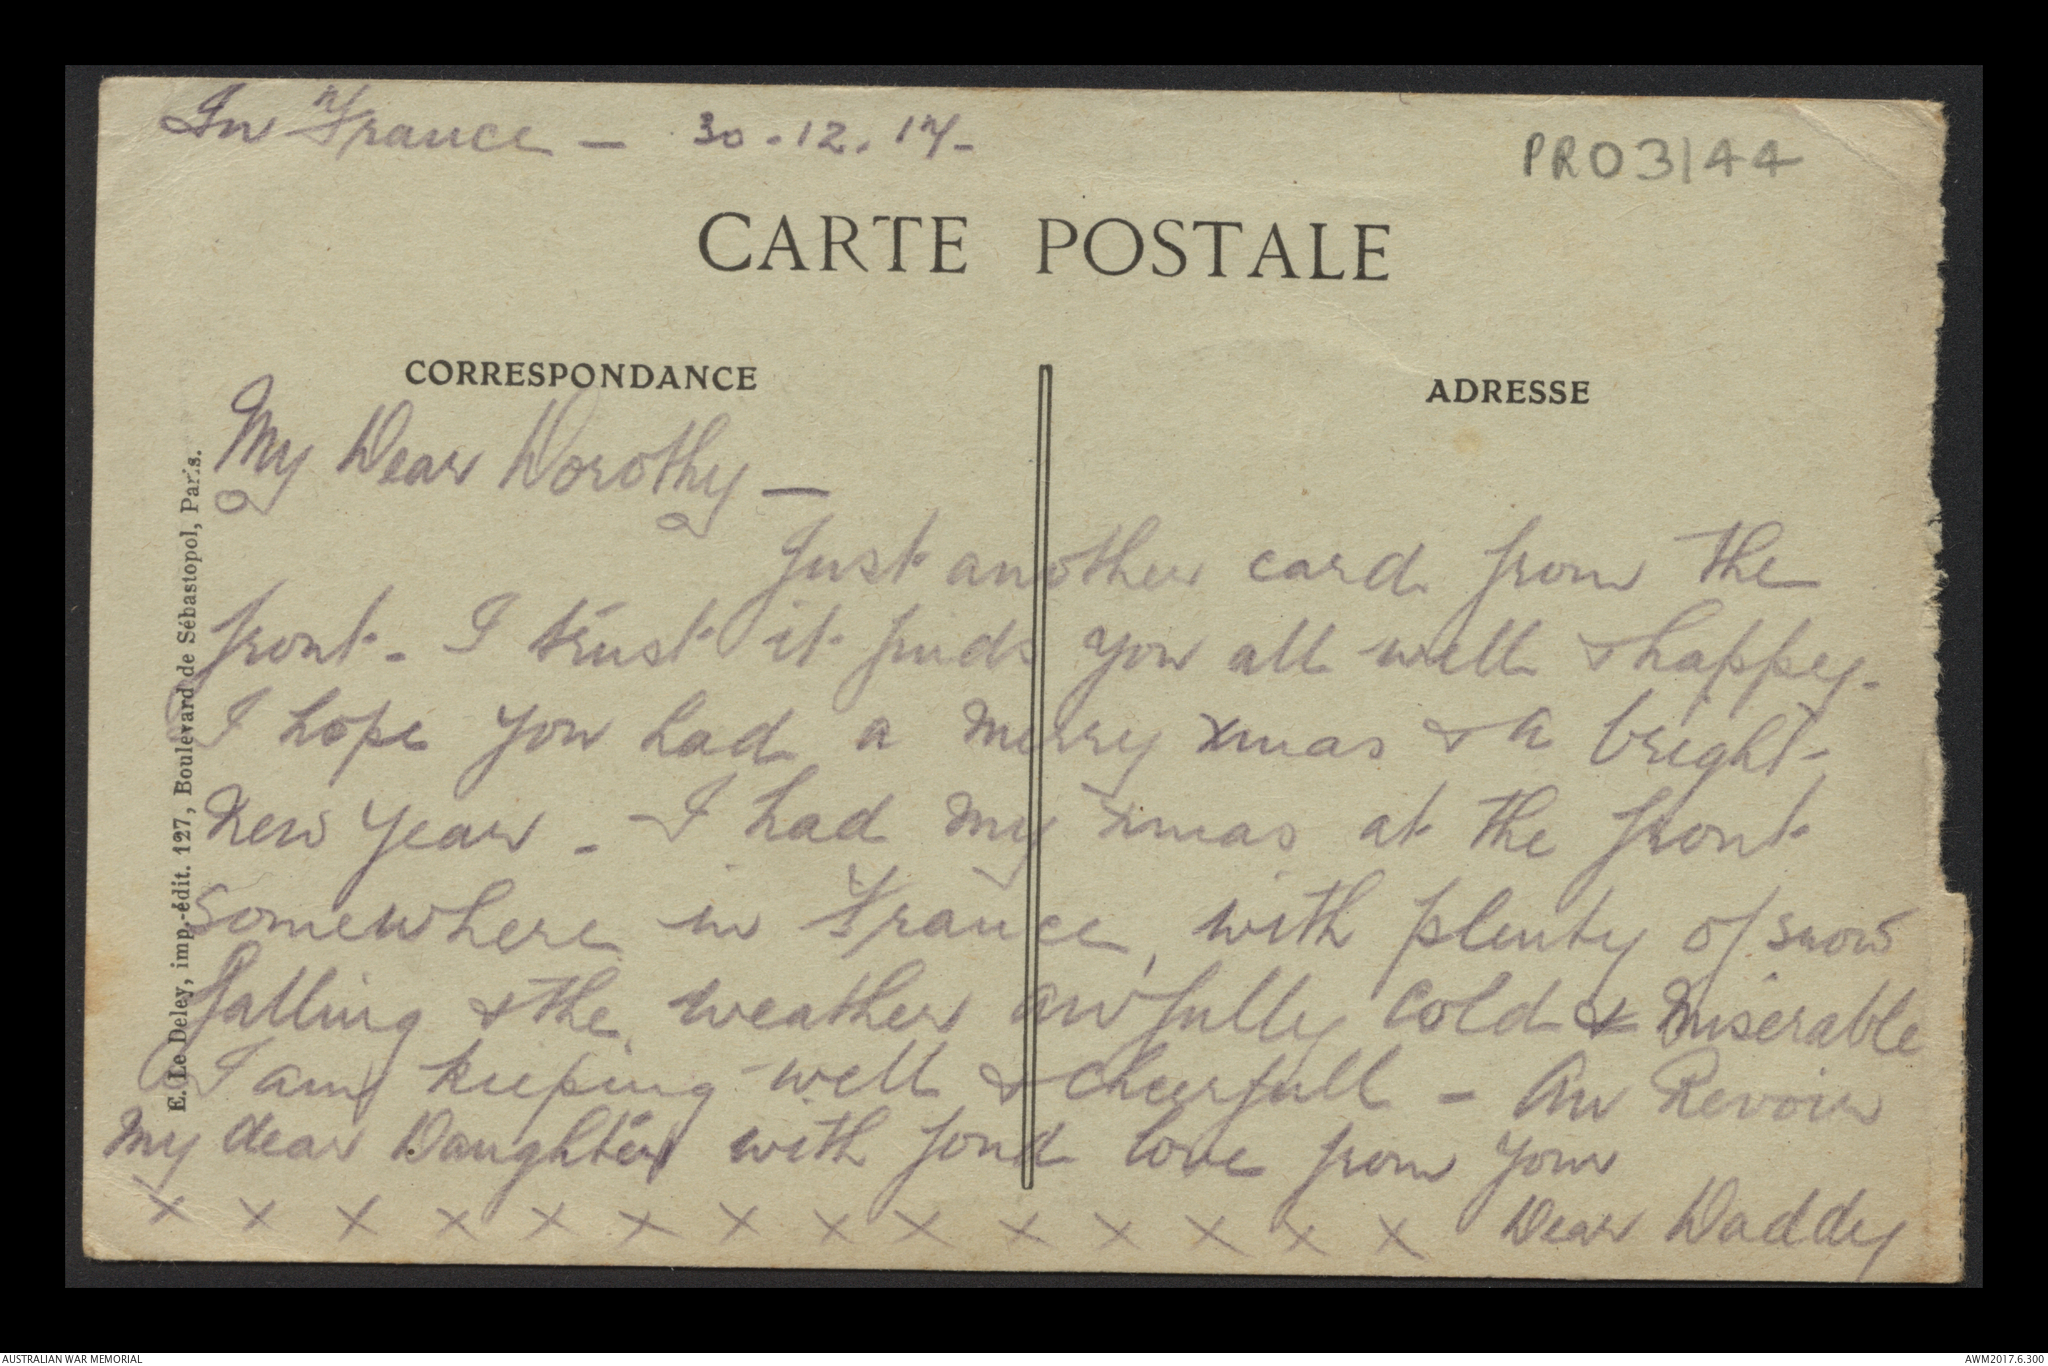 In France – 30.12.17–
PRO3144
CARTE POSTALE
CORRESPONDANCE
ADRESSE
My Dear Dorothy –
Just another card from the
front – I trust it finds you all well & happy –
I hope you had a merry xmas & a bright
New Year – I had my xmas at the front
Somewhere in France, with plenty of snow
falling & the weather awfully cold & miserable
I am keeping well & cheerfull – Au Revoir
My dear Daughter with fond love from your
x x x x x x x x x x x x x x Dear Daddy
E. Le Deley, imp.-édit. 127, Boulevard de Sébastopol, Paris.
AUSTRALIAN WAR MEMORIAL
AWM2017.6.300